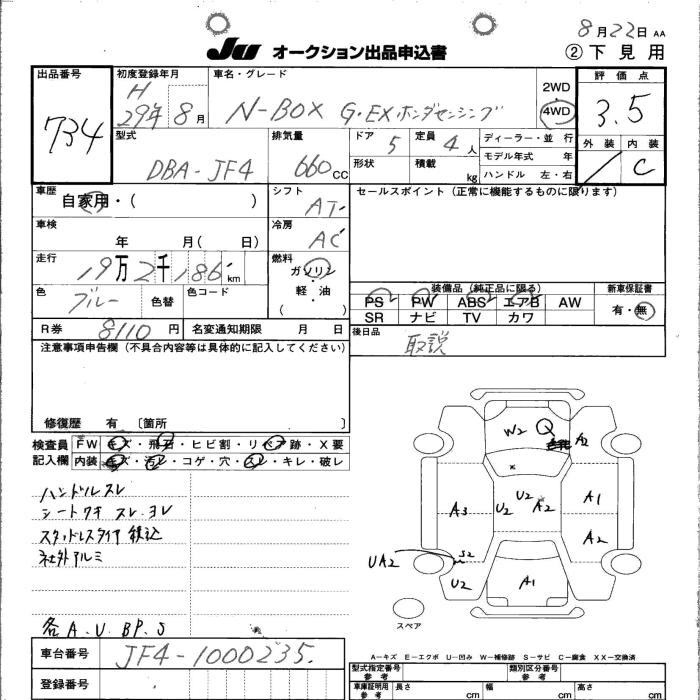 8月22日 AA
JU オークション出品申込書 ②下見用
出品番号 734
初度登録年月 H 29年 8月
車名・グレード N-BOX G・EXホンダセンシング
2WD 4WD
評価点 3.5
外装 / 内装 C
型式 DBA-JF4
排気量 660cc
ドア 5 定員 4人
形状 積載 kg
ディーラー・並行
モデル年式 年
ハンドル 左・右
車歴 自家用・( )
シフト AT
セールスポイント（正常に機能するものに限ります）
車検 年 月( 日)
冷房 AC
走行 19万2千186km
燃料 ガソリン 軽・油 ( )
色 ブルー 色替 色コード
装備品（純正品に限る） 新車保証書
PS PW ABS エアB AW 有・無
SR ナビ TV カワ
R券 8110円 名変通知期限 月 日
後日品 取説
注意事項申告欄（不具合内容等は具体的に記入してください）
修復歴 有 〔箇所 〕
検査員記入欄
FW キズ・飛石・ヒビ割・リペア跡・X要
内装 キズ・汚レ・コゲ・穴・スレ・キレ・破レ
ハンドルスレ
シートワキ スレ、ヨレ
スタッドレスタイヤ積込
社外アルミ
各A.U.BP.S
W2 A2
U2 U2 A2
A3 A1
A2
UA2 S2
U2 A1
スペア
A－キズ E－エクボ U－凹み W－補修跡 S－サビ C－腐食 XX－交換済
車台番号 JF4-1000235
登録番号
型式指定番号 参考 類別区分番号 参考
車庫証明用 参考 長さ cm 幅 cm 高さ cm